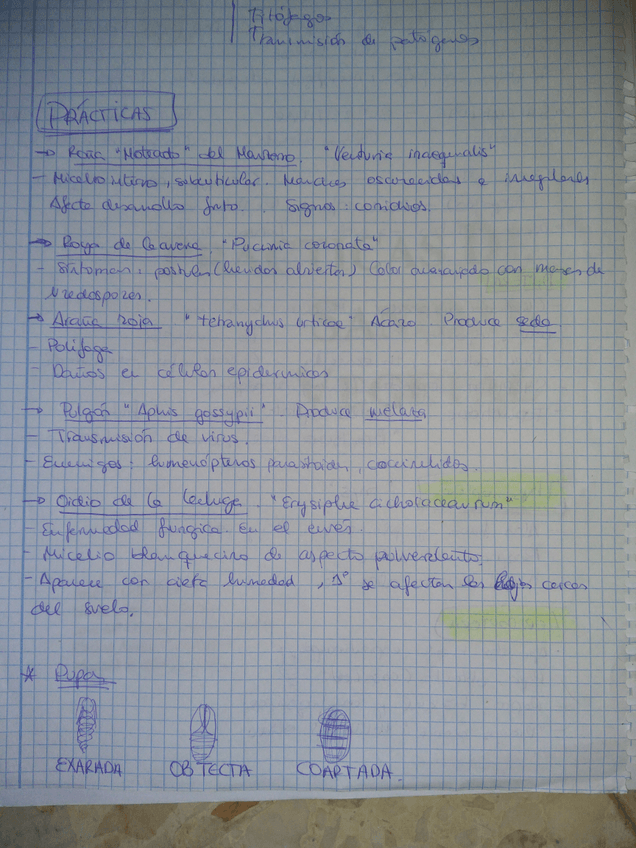 Fitófagos
Transmisión de patógenos
PRÁCTICAS
→ Roña "Moteado" del Manzano. "Venturia inaequalis"
- Micelio interno, subcuticular. Manchas oscurecidas e irregulares
Afecta desarrollo fruto. Signos: conidios.
→ Roya de la avena. "Puccinia coronata"
- Síntomas: pústulas (heridas abiertas) Color anaranjado con masas de
Uredosporas.
→ Araña roja "tetranychus urticae" Ácaro. Produce seda
- Polífaga
- Daños en células epidérmicas
→ Pulgón "Aphis gossypii". Produce melaza
- Transmisión de virus.
- Enemigos: himenópteros parasitoides, coccinélidos.
→ Oidio de la lechuga. "Erysiphe cichoracearum"
- Enfermedad fúngica. En el envés
- Micelio blanquecino de aspecto polvoriento.
- Aparece con cierta humedad, 1º se afectan las hojas cercas
del suelo.
* Pupas
EXARADA OBTECTA COARTADA.